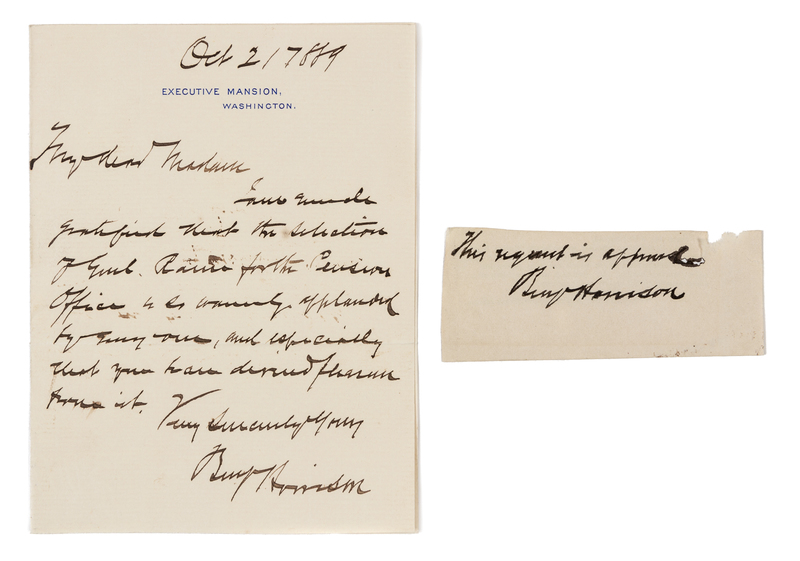 Oct 21 1889
EXECUTIVE MANSION,
WASHINGTON.
My dear Madam
I am much
gratified that the selection
of Genl. Raum for the Pension
Office is so warmly applauded
by every one, and especially
that you have derived pleasure
from it.
Very Sincerely Yours
Benj Harrison
This request is approved
Benj Harrison